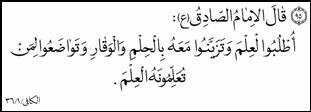 ﴿٩٥﴾ قَالَ الإِمَامُ الصَّادِقُ (ع):
اُطْلُبُوا الْعِلْمَ وَتَزَيَّنُوا مَعَهُ بِالْحِلْمِ وَالْوَقَارِ وَتَوَاضَعُوا لِمَنْ
تُعَلِّمُونَهُ الْعِلْمَ .
الكافي ٣٦/١